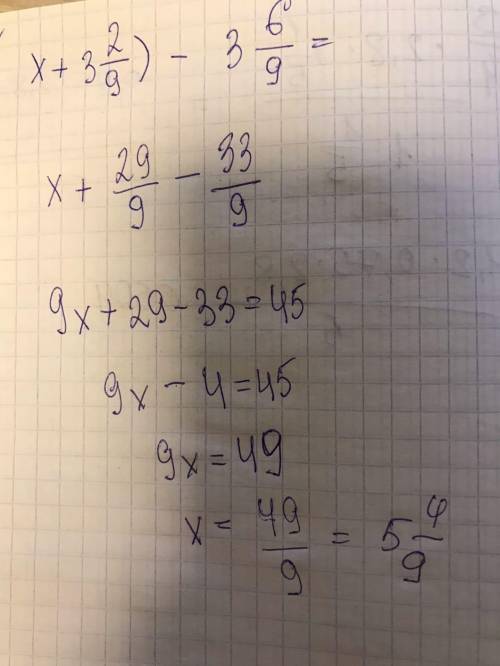 x + 3 2/9) - 3 6/9 =
x + 29/9 - 33/9
9x + 29 - 33 = 45
9x - 4 = 45
9x = 49
x = 49/9 = 5 4/9